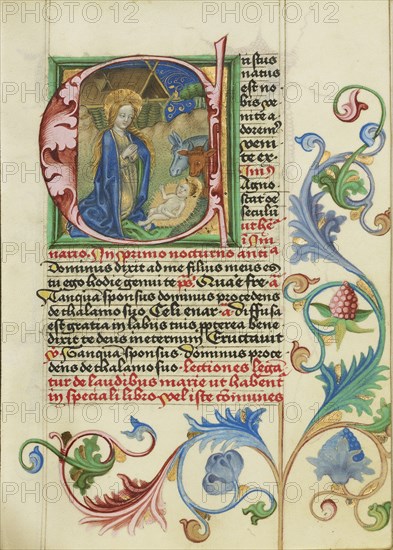 PHOTO12 PHOTO12 PHOTO12
ristus
natus
est no
bis ve
nite a
doremꝰ
venit
te ex
Agno
scat oē
seculū
naro. In primo nocturno anti a
Dominus dixit ad me filius meus es
tu ego hodie genui te pͤs Quare fre a
Tanqua sponsus dominus procedens
de thalamo suo. Celi enar a diffusa
est gratia in labiis tuis ꝓpterea bene
dixit te deus in eternū Eructauit
v Tanqua sponsus dominus proce
dens de thalamo suo lectiones lega
tur de laudibus marie ut habent
in speciali libro vel iste cōmunes